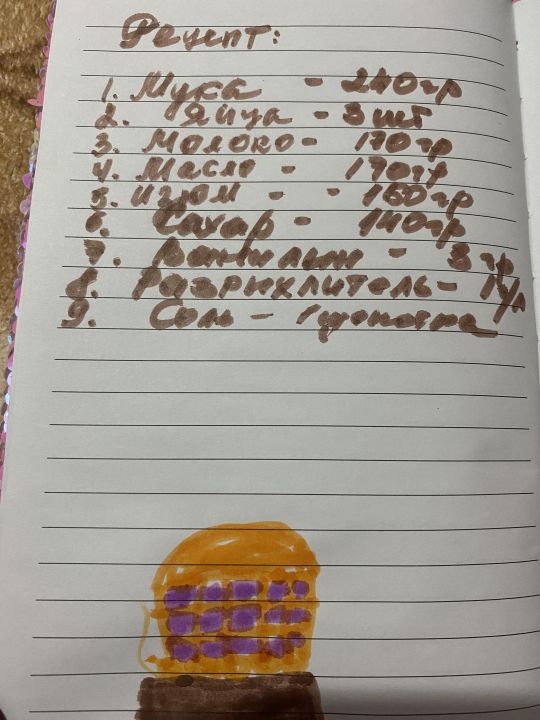 Рецепт:
1. Мука - 240 гр
2. Яйца - 3 шт
3. Молоко - 170 гр
4. Масло - 170 гр
5. Изюм - - 160 гр
6. Сахар - 140 гр
7. Ванилын - 3 гр
8. Разрихлитель -
9. Соль - 1 щепотка